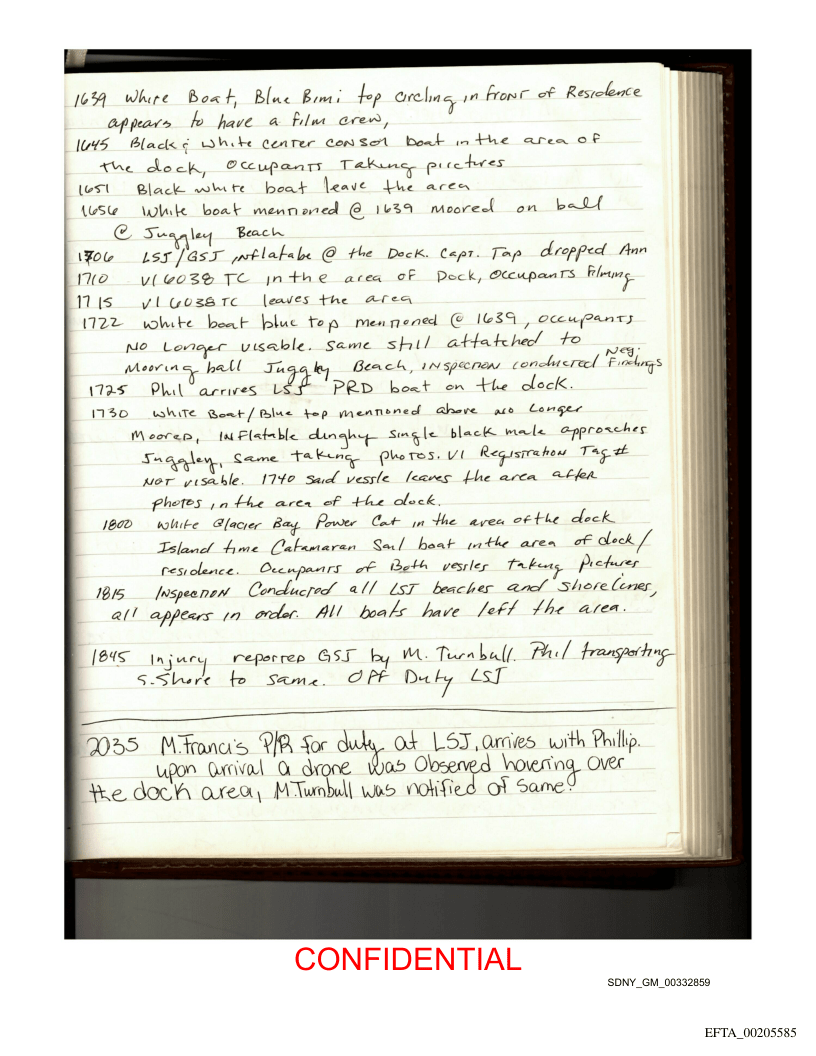 1639 White Boat, Blue Bimi top circling in front of Residence
appears to have a film crew,
1645 Black & white center consol boat in the area of
the dock, occupants Taking pirctures
1651 Black white boat leave the area
1656 White boat mentioned @ 1639 moored on ball
@ Juggley Beach
1706 LSJ/GSJ inflatabe @ the Dock. Capt. Tap dropped Ann
1710 VI 6038 TC in the area of Dock, occupants Filming
1715 VI 6038 TC leaves the area
1722 White boat blue top mentioned @ 1639, occupants
No Longer visable. Same still attatched to
Mooring ball Juggley Beach, inspection conducted Neg. Findings
1725 Phil arrives LSJ PRD boat on the dock.
1730 White Boat/Blue top mentioned above no Longer
Moored, inflatable dinghy single black male approaches
Juggley, same taking photos. VI Registration Tag #
NOT visable. 1740 said vessle leaves the area after
photos in the area of the dock.
1800 White Glacier Bay Power Cat in the area of the dock
Island time Catamaran Sail boat in the area of dock/
residence. Occupants of Both vesles taking pictures
1815 Inspection Conducted all LSJ beaches and shorelines,
all appears in order. All boats have left the area.
1845 injury reported GSJ by M. Turnbull. Phil transporting
S. Shore to same. Off Duty LSJ
2035 M.Francis P/R for duty at LSJ, arrives with Phillip.
upon arrival a drone was Observed hovering over
the dock area, M.Turnbull was notified of same.
CONFIDENTIAL
SDNY_GM_00332859
EFTA_00205585